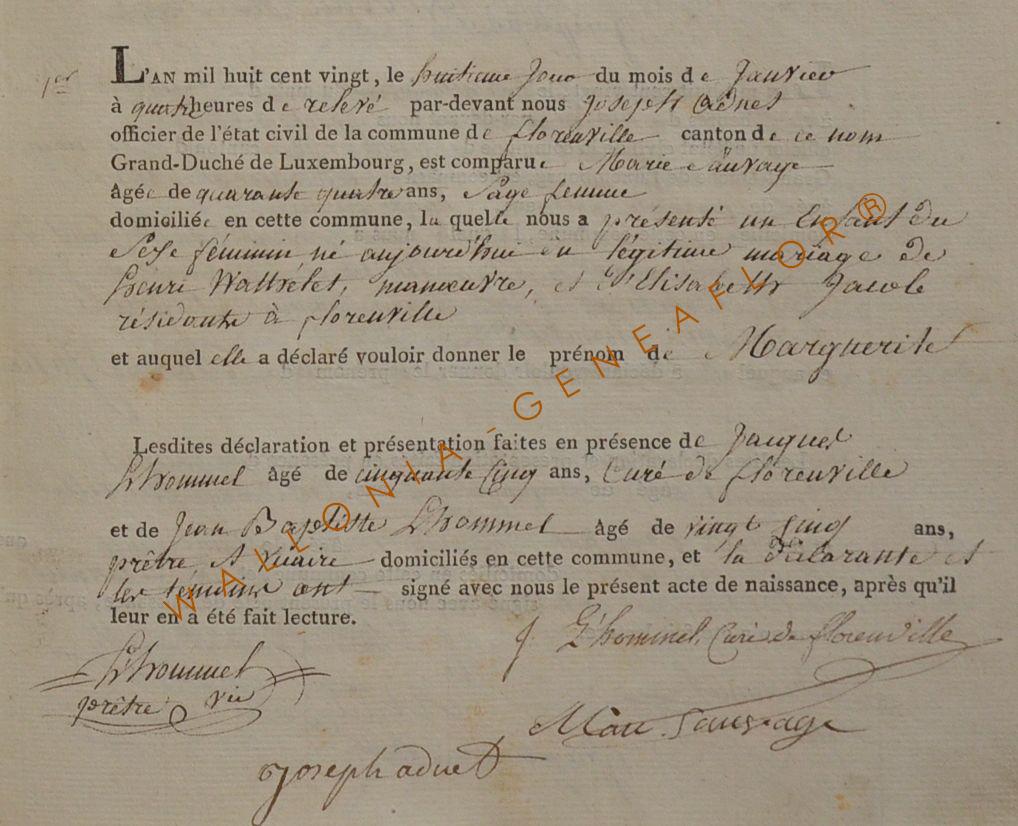 1er
L'AN mil huit cent vingt, le huitieme jour du mois de Janvier
à quatre heures de relevé par-devant nous Joseph Adnet
officier de l'état civil de la commune de florenville canton de ce nom
Grand-Duché de Luxembourg, est comparue Marie Sauvage
âgée de quarante quatre ans, Sage femme
domiciliée en cette commune, la quelle nous a présenté un Enfant du
Sexe féminin né aujourd'hui en légitime mariage de
henri Wattrélet, manoeuvre, et d'Elisabeth Jacob
résidante à florenville
et auquel elle a déclaré vouloir donner le prénom de Marguerite
Lesdites déclaration et présentation faites en présence de Jacques
Lhommel âgé de cinquante Cinq ans, Curé de florenville
et de Jean Baptiste Lhommel âgé de vingt Cinq ans,
prêtre et vicaire domiciliés en cette commune, et la déclarante et
les temoins ont signé avec nous le présent acte de naissance, après qu'il
leur en a été fait lecture.
J Lhommel, Curé de florenville
Lhommel
prêtre vic
Marie Sauvage
Joseph adnet
WALLONIA-GENEAFLOR®